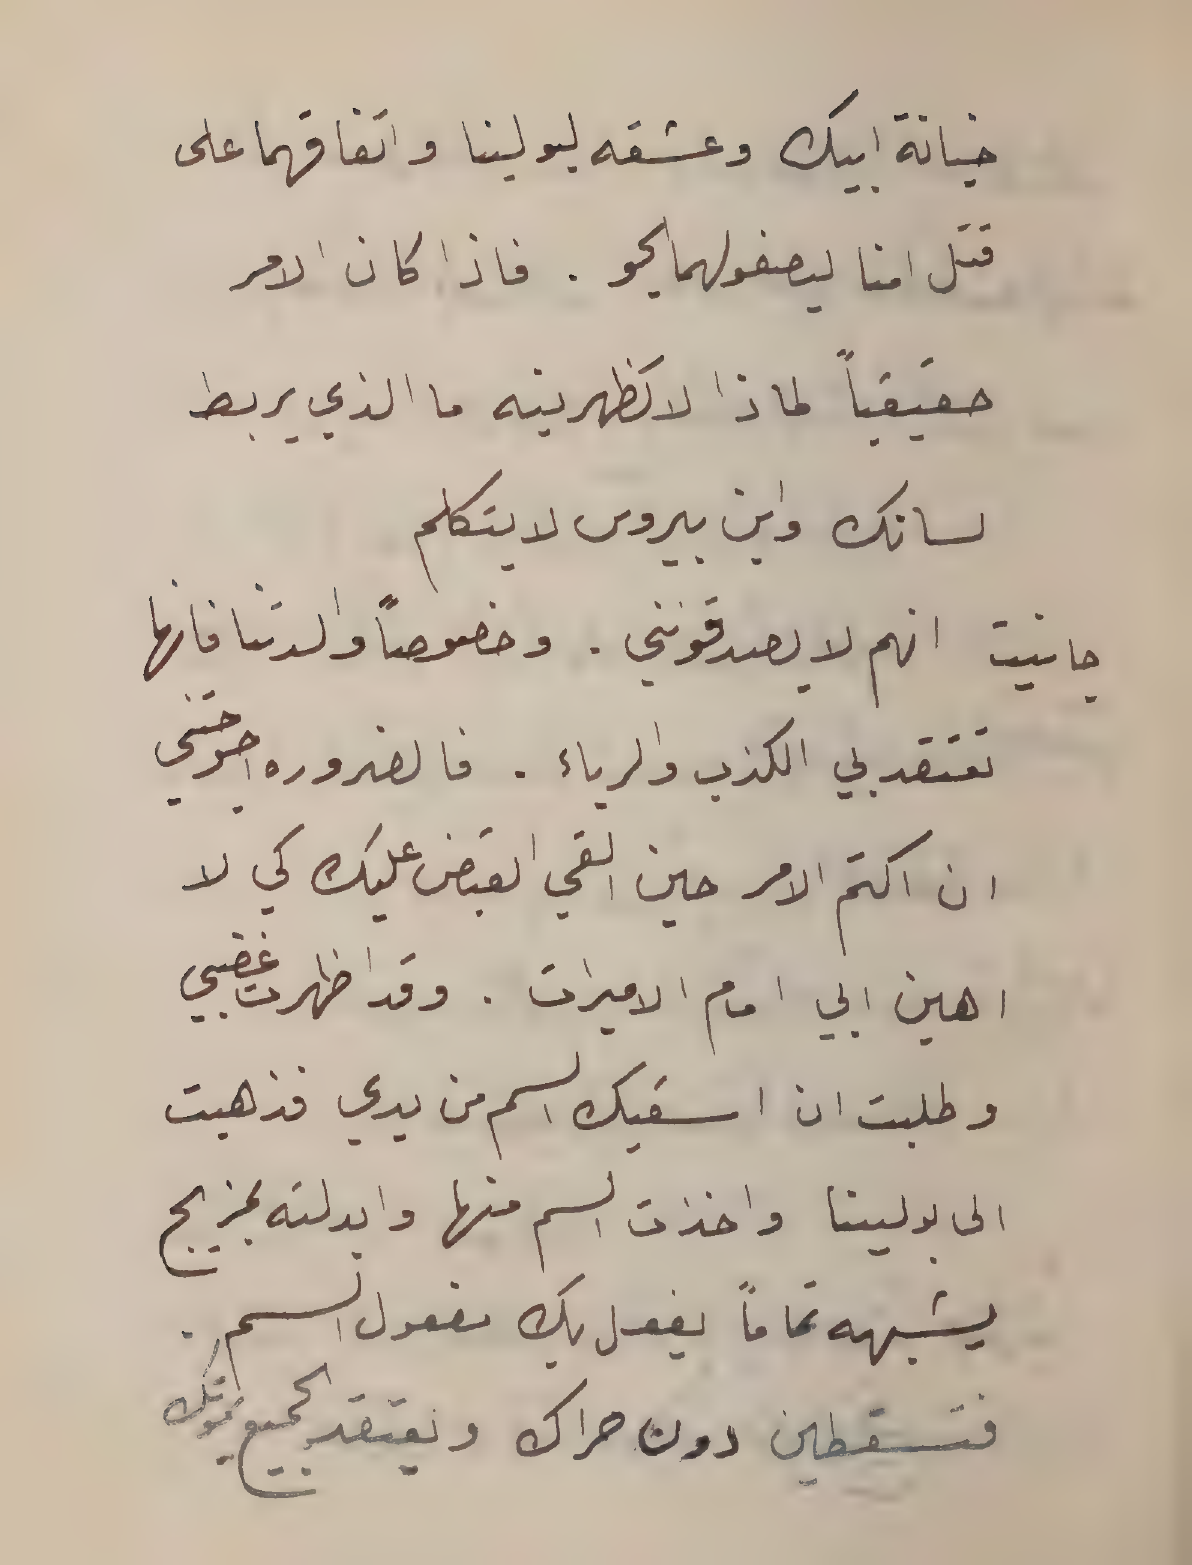 خيانة ابيك وعشقه لبولينا واتفاقهما على
قتل امنا ليصفو لهما الجو . فاذا كان الامر
حقيقياً لماذا لا تظهرينه ما الذي يربط
لسانك واين بيروس لا يتكلم
جانيت انهم لا يصدقونني . وخصوصاً والدتنا فانها
تعتقد بي الكذب والرياء . فالضروره احوجتني
ان اكتم الامر حين القي القبض عليك كي لا
اهين ابي امام الاميرات . وقد اظهرت غضبي
وطلبت ان اسقيك السم من يدي فذهبت
الى بولينا واخذت السم منها وابدلته بمزيج
يشبهه تماماً يفعل بك مفعول السم .
فتسقطين دون حراك ويعتقد الجميع بموتك